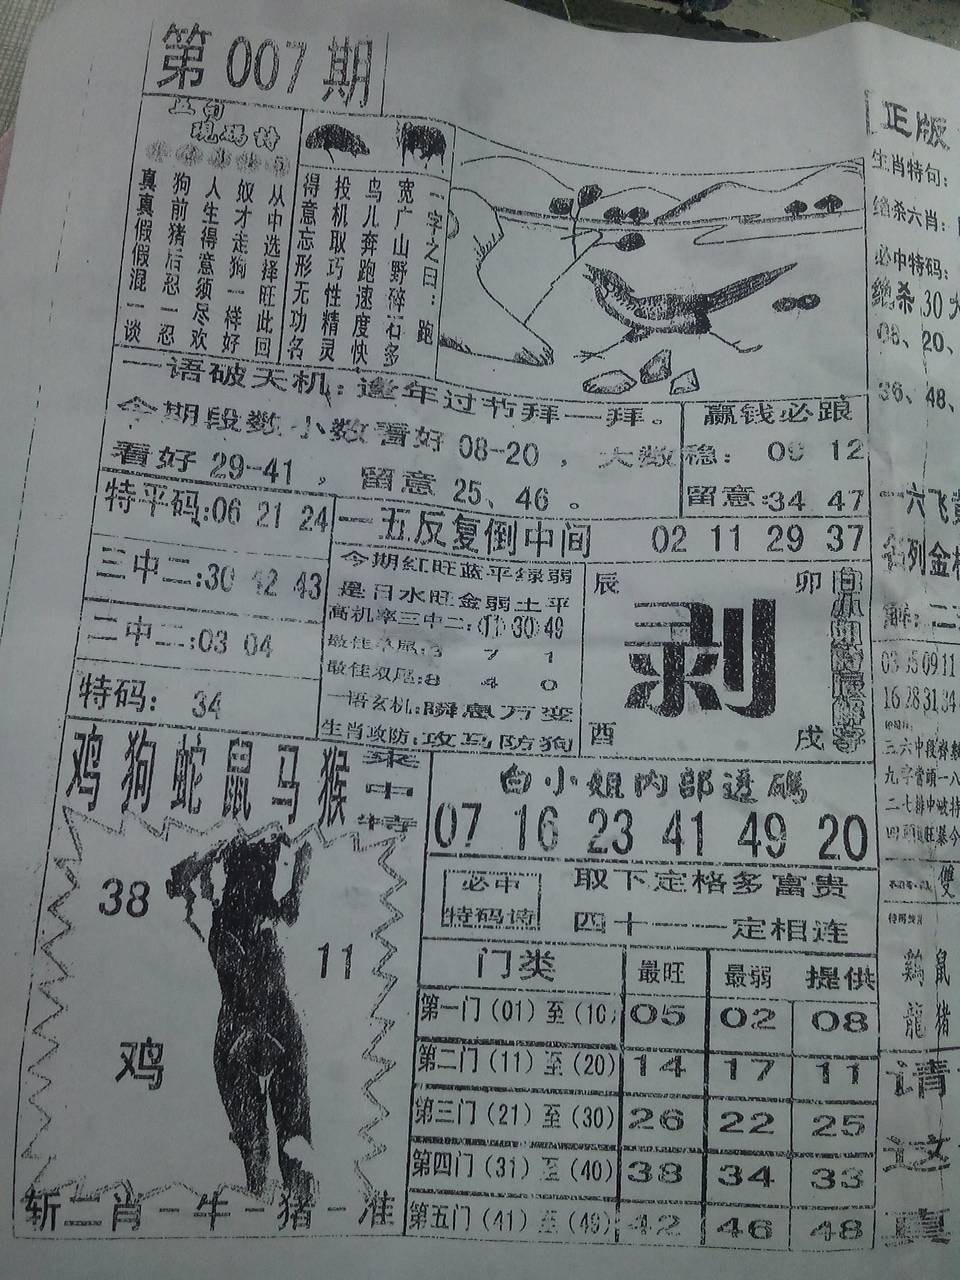 第007期
五句
现码诗
从中选择旺此回
奴才走狗一样好
人生得意须尽欢
狗前猪后忍一忍
真真假假混一谈
一字之曰：跑
宽广山野碎石多
鸟儿奔跑速度快
投机取巧性精灵
得意忘形无功名
一语破天机：逢年过节拜一拜。
今期段数小数看好08-20，大数
看好29-41，留意25、46。
赢钱必跟
稳：09 12
留意:34 47
特平码:06 21 24
三中二:30 42 43
二中二:03 04
特码：34
一五反复倒中间 02 11 29 37
今期红旺蓝平绿弱
是日水旺金弱土平
高机率三中二:(11)(30)(49)
最佳单尾:3 7 1
最佳双尾:8 4 0
一语玄机:瞬息万变
生肖攻防:攻马防狗
辰 卯
剥
酉 戌
鸡狗蛇鼠马猴
来中特
38
11
鸡
斩二肖一牛一猪一准
白小姐内部送码
07 16 23 41 49 20
必中
特码诗
取下定格多富贵
四十一一定相连
门类 最旺 最弱 提供
第一门（01）至（10） 05 02 08
第二门（11）至（20） 14 17 11
第三门（21）至（30） 26 22 25
第四门（31）至（40） 38 34 33
第五门（41）至（49） 42 46 48
正版
生肖特句：
绝杀六肖：
必中特码：
绝杀30
08、20、
36、48、
一六飞
列金
03 05 09 11
16 28 31 34
三六中段
九字當頭一八
二七排中破特
雙
鷄鼠
龍猪
请
这
真